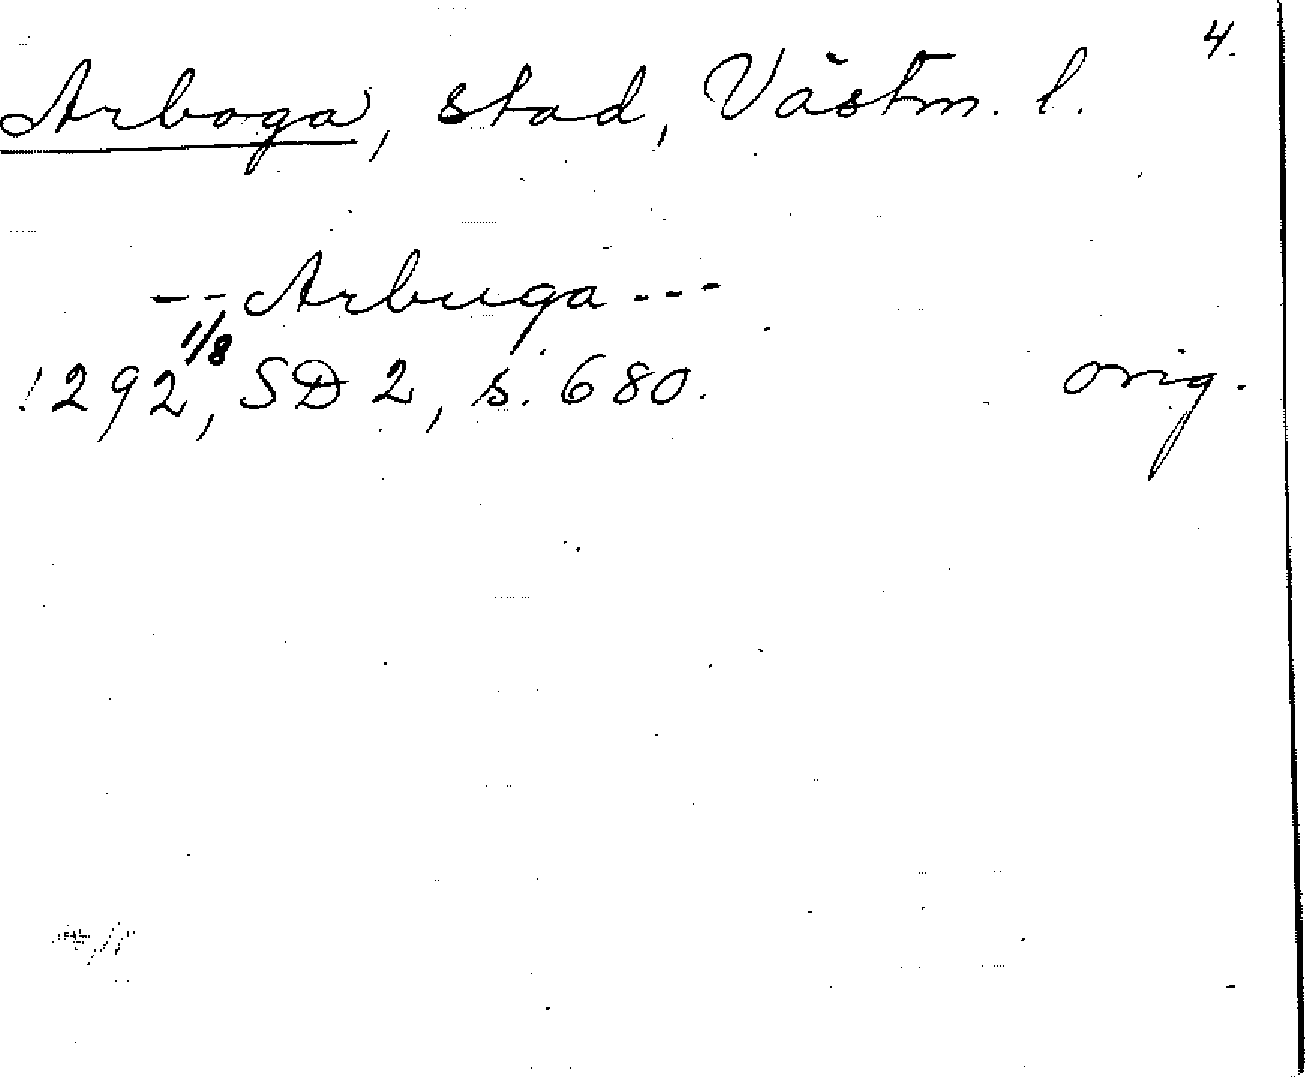 4.
Arboga, stad, Västm. l.
-- Arbuga ---
1292 1/8, SD 2, s. 680. orig.